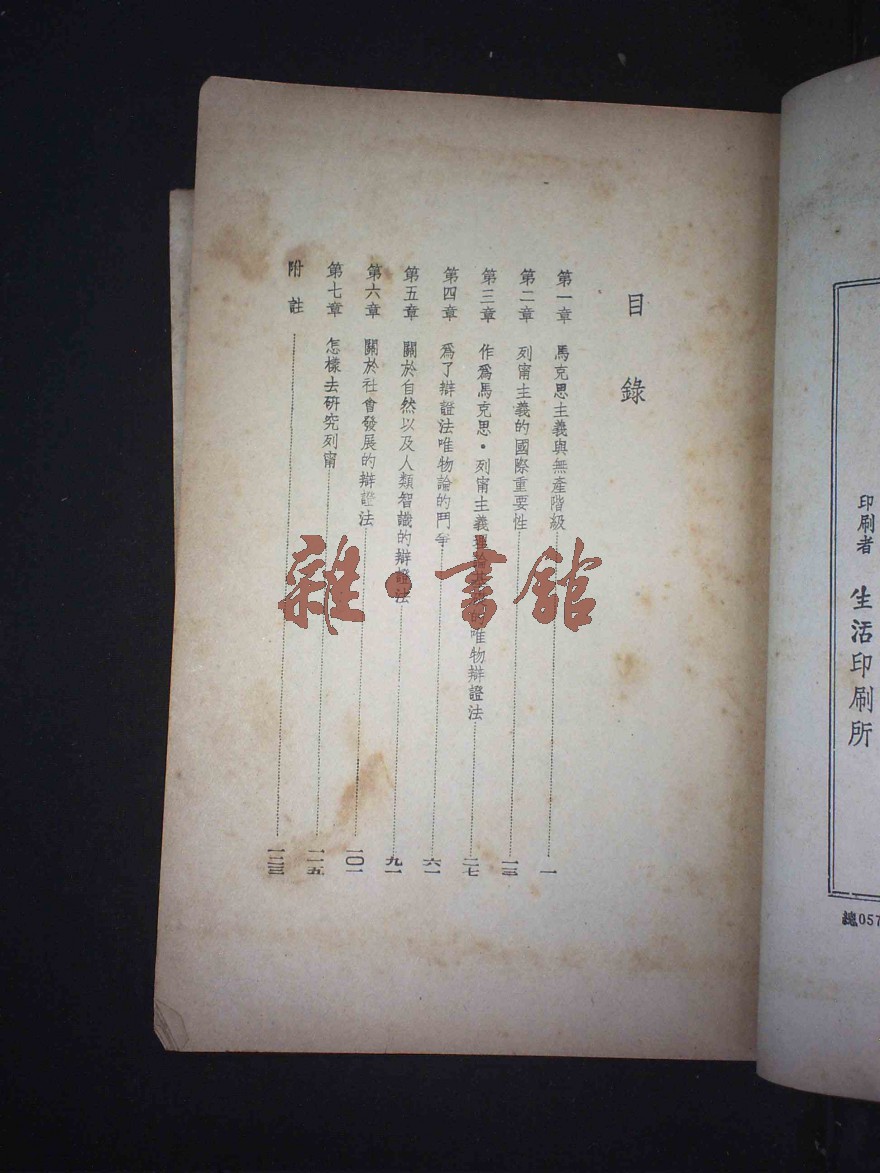 印刷者 生活印刷所
總057
目錄
第一章 馬克思主義與無產階級 一
第二章 列甯主義的國際重要性 一三
第三章 作爲馬克思・列甯主義理論 的唯物辯證法 二七
第四章 爲了辯證法唯物論的鬥爭 六一
第五章 關於自然以及人類智識的辯證法 九一
第六章 關於社會發展的辯證法 一〇一
第七章 怎樣去研究列甯 一一五
附註 一二三
雜・書館